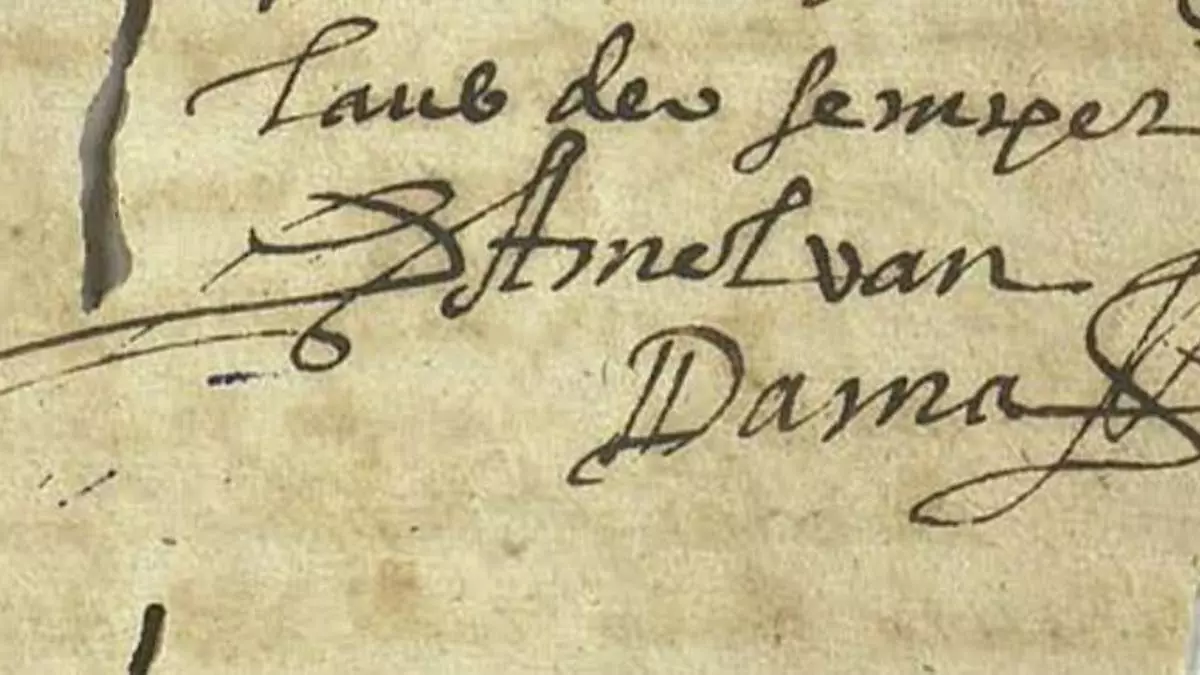 laus deo semper
Amel van
Dama